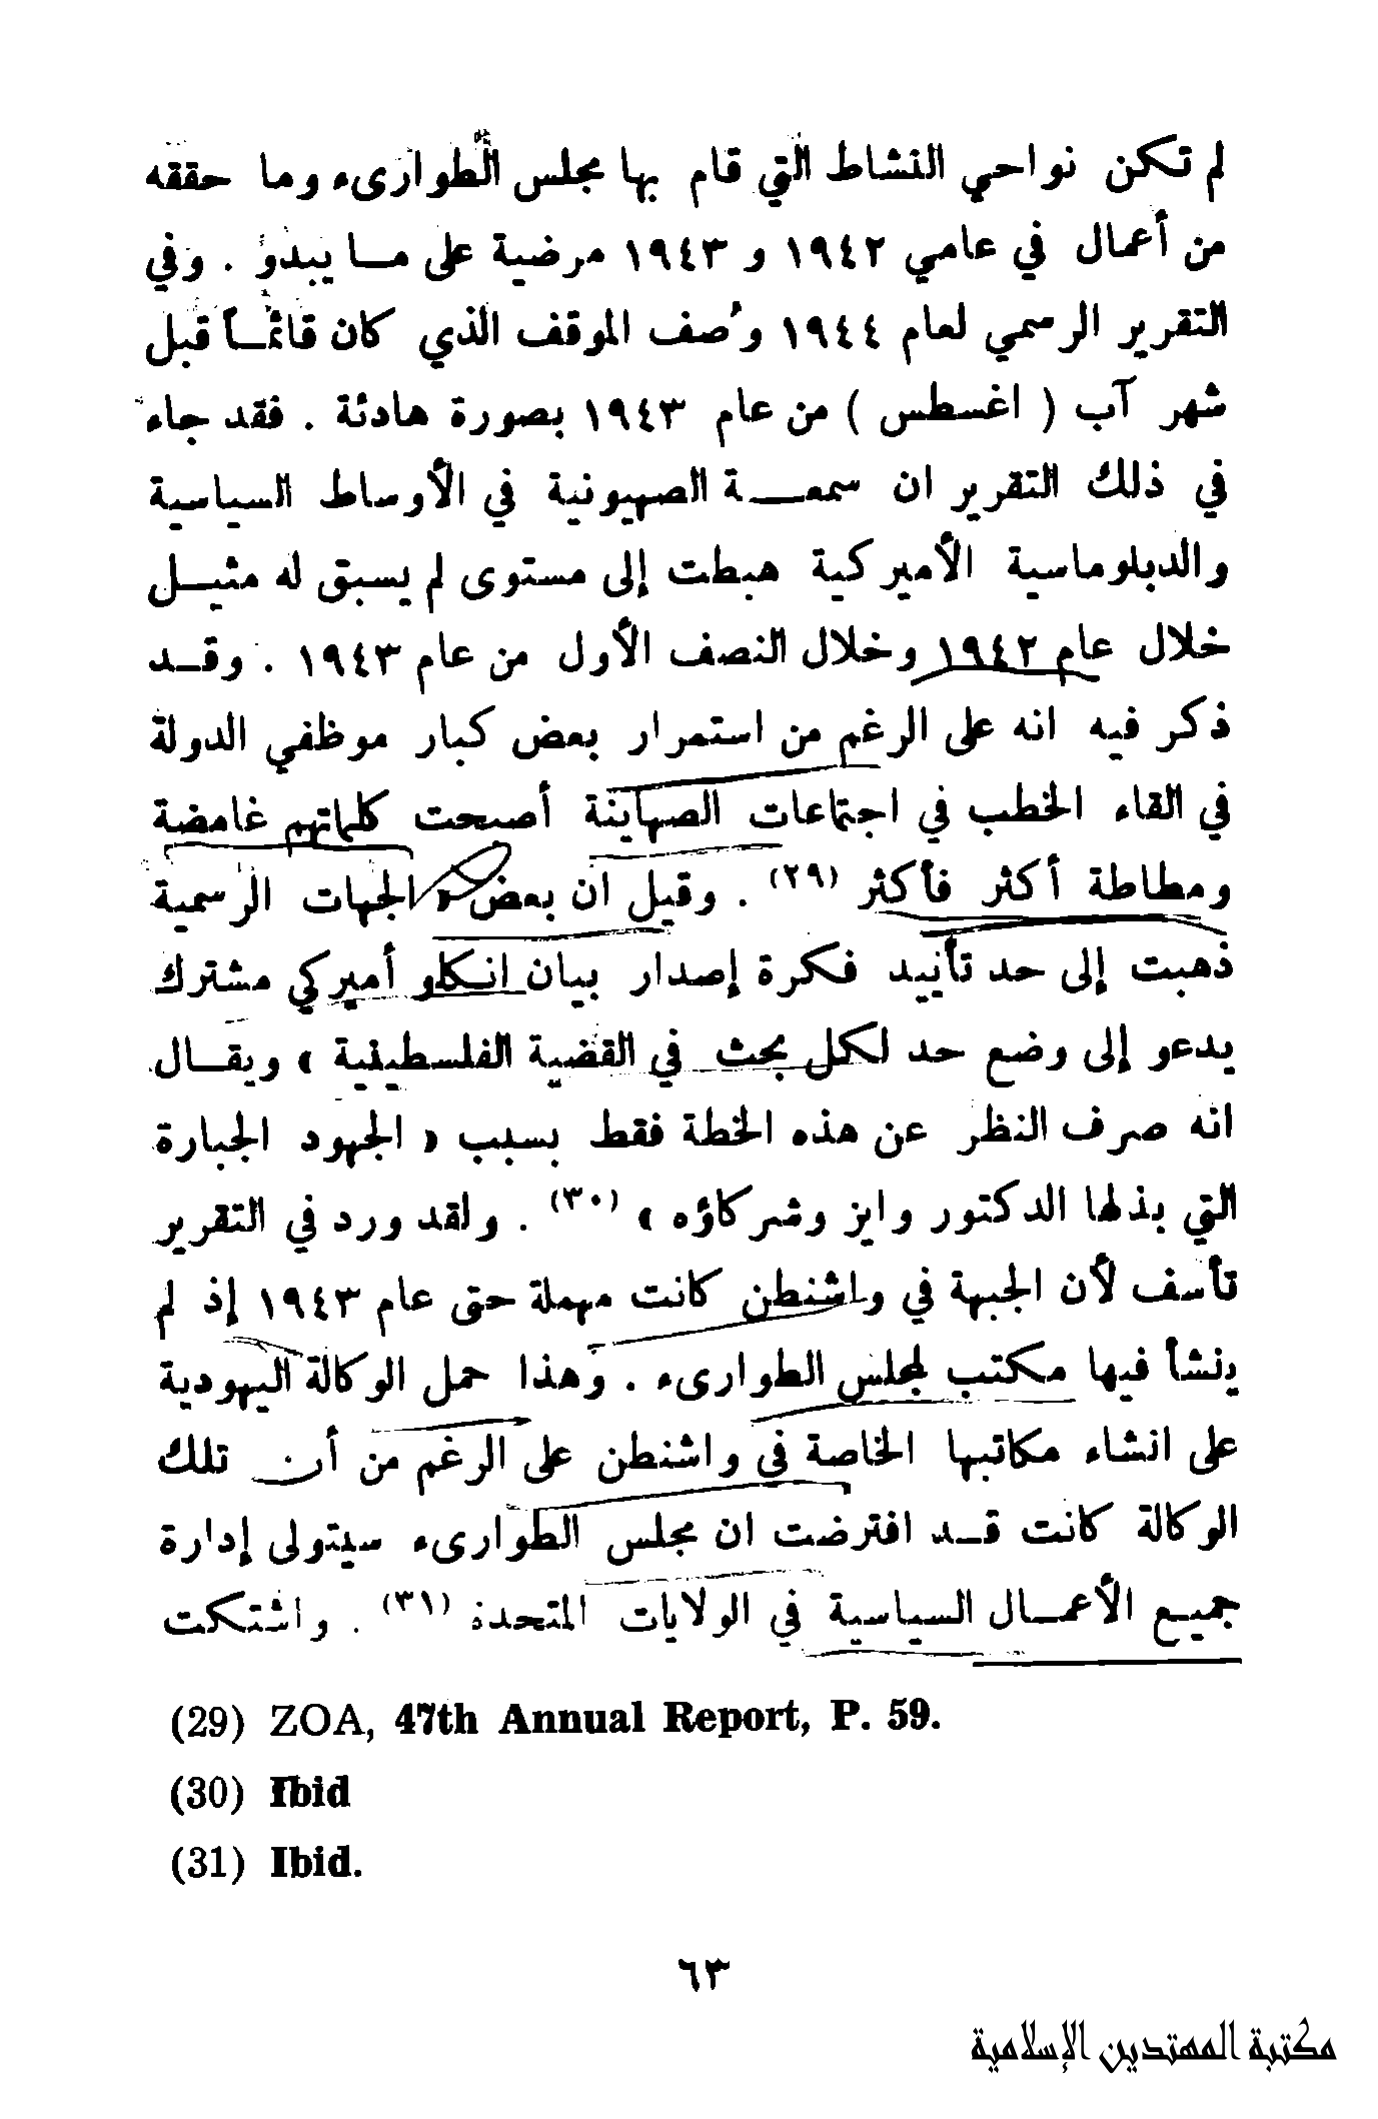 لم تكن نواحي النشاط التي قام بها مجلس الطوارىء وما حققه
من أعمال في عامي ١٩٤٢ و ١٩٤٣ مرضية على مـا يبدو . وفي
التقرير الرسمي لعام ١٩٤٤ وُصف الموقف الذي كان قائمـاً قبل
شهر آب ( اغسطس ) من عام ١٩٤٣ بصورة هادئة . فقد جاء
في ذلك التقرير ان سمعـــة الصهيونية في الأوساط السياسية
والدبلوماسية الأميركية هبطت إلى مستوى لم يسبق له مثيـل
خلال عام ١٩٤٢ وخلال النصف الأول من عام ١٩٤٣ . وقـد
ذكر فيه انه على الرغم من استمرار بعض كبار موظفي الدولة
في القاء الخطب في اجتماعات الصهاينة أصبحت كلماتهم غامضة
ومطاطة أكثر فأكثر (٢٩) . وقيل ان بعض « الجهات الرسمية
ذهبت إلى حد تأييد فكرة إصدار بيان انكلو أميركي مشترك
يدعو إلى وضع حد لكل بحث في القضية الفلسطينية » ويقـال
انه صرف النظر عن هذه الخطة فقط بسبب « الجهود الجبارة
التي بذلها الدكتور وايز وشركاؤه » (٣٠) . ولقد ورد في التقرير
تأسف لأن الجبهة في واشنطن كانت مهملة حتى عام ١٩٤٣ إذ لم
ينشأ فيها مكتب لمجلس الطوارىء . وهذا حمل الوكالة اليهودية
على انشاء مكاتبها الخاصة في واشنطن على الرغم من أن تلك
الوكالة كانت قـد افترضت ان مجلس الطوارىء سيتولى إدارة
جميـع الأعمـال السياسية في الولايات المتحدة (٣١) . واشتكت
(29) ZOA, 47th Annual Report, P. 59.
(30) Ibid
(31) Ibid.
٦٣
مكتبة المهتدين الإسلامية